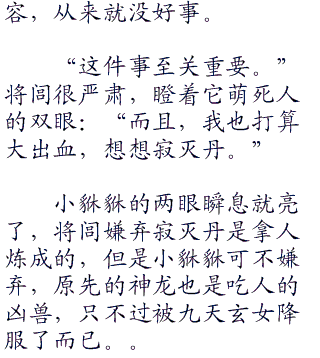 容，从来就没好事。
“这件事至关重要。”
将闾很严肃，瞪着它萌死人
的双眼：“而且，我也打算
大出血，想想寂灭丹。”
小貅貅的两眼瞬息就亮
了，将闾嫌弃寂灭丹是拿人
炼成的，但是小貅貅可不嫌
弃，原先的神龙也是吃人的
凶兽，只不过被九天玄女降
服了而已。。